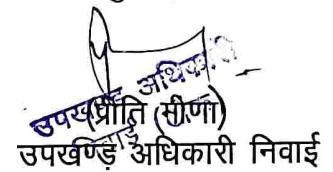 उपखण्ड अधिकारी
(प्रीति मीणा)
उपखण्ड़ अधिकारी निवाई